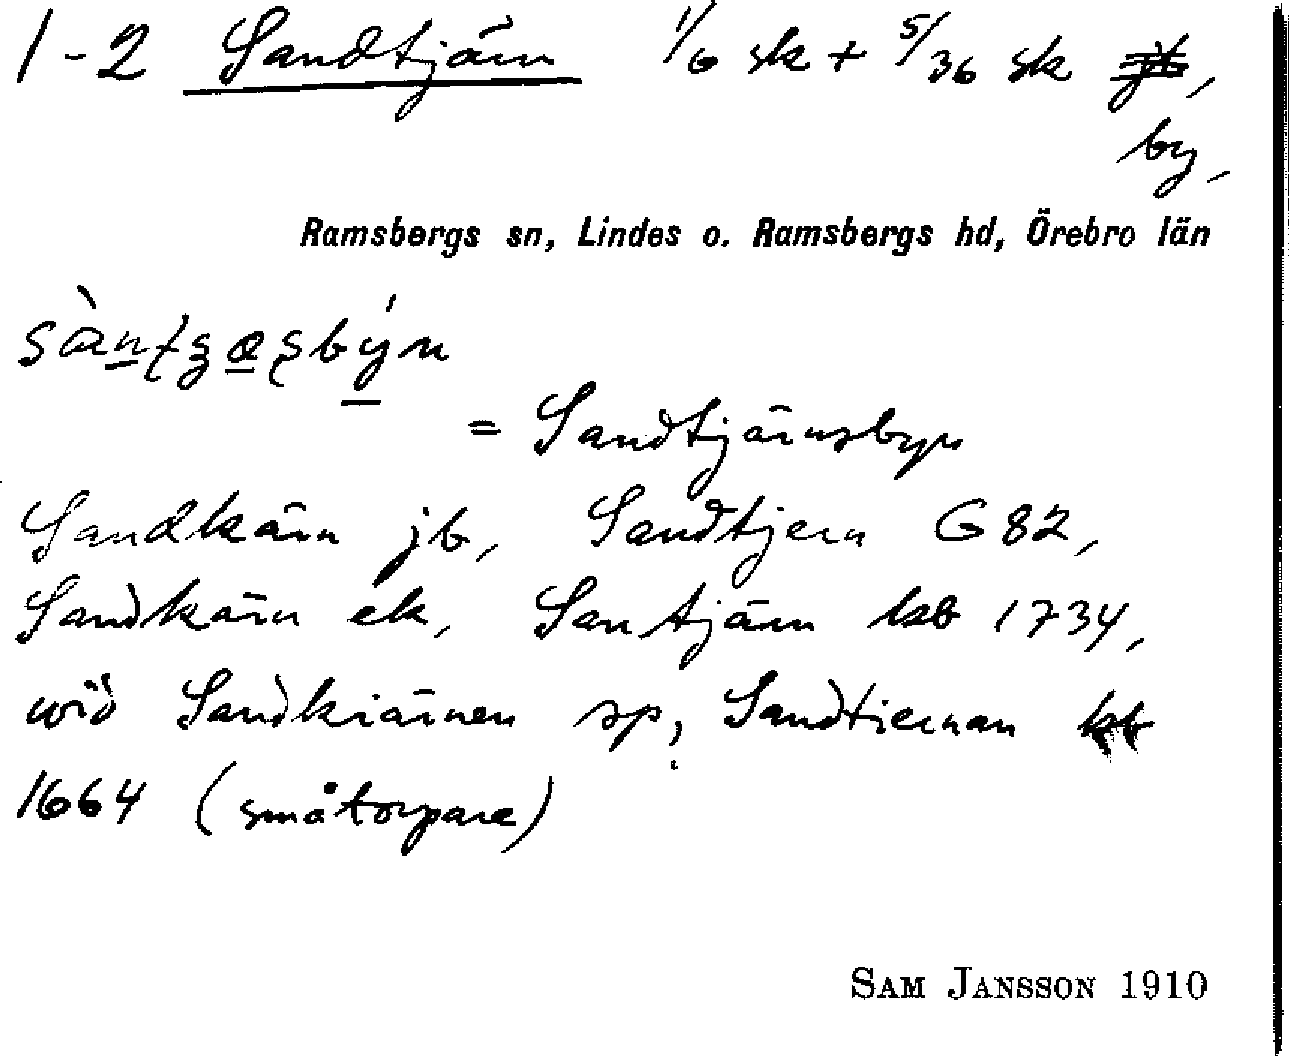 1-2 Sandtjärn 1/6 sk + 5/36 sk jb,
by,
Ramsbergs sn, Lindes o. Ramsbergs hd, Örebro län
= Sandtjärnsbyn
Sandkärn jb, Sandtjern G 82,
Sandkärn ek, Santjärn lsb 1734,
wid Sandkiärnen sp, Sandtiernan kb
1664 (småtorpare)
SAM JANSSON 1910